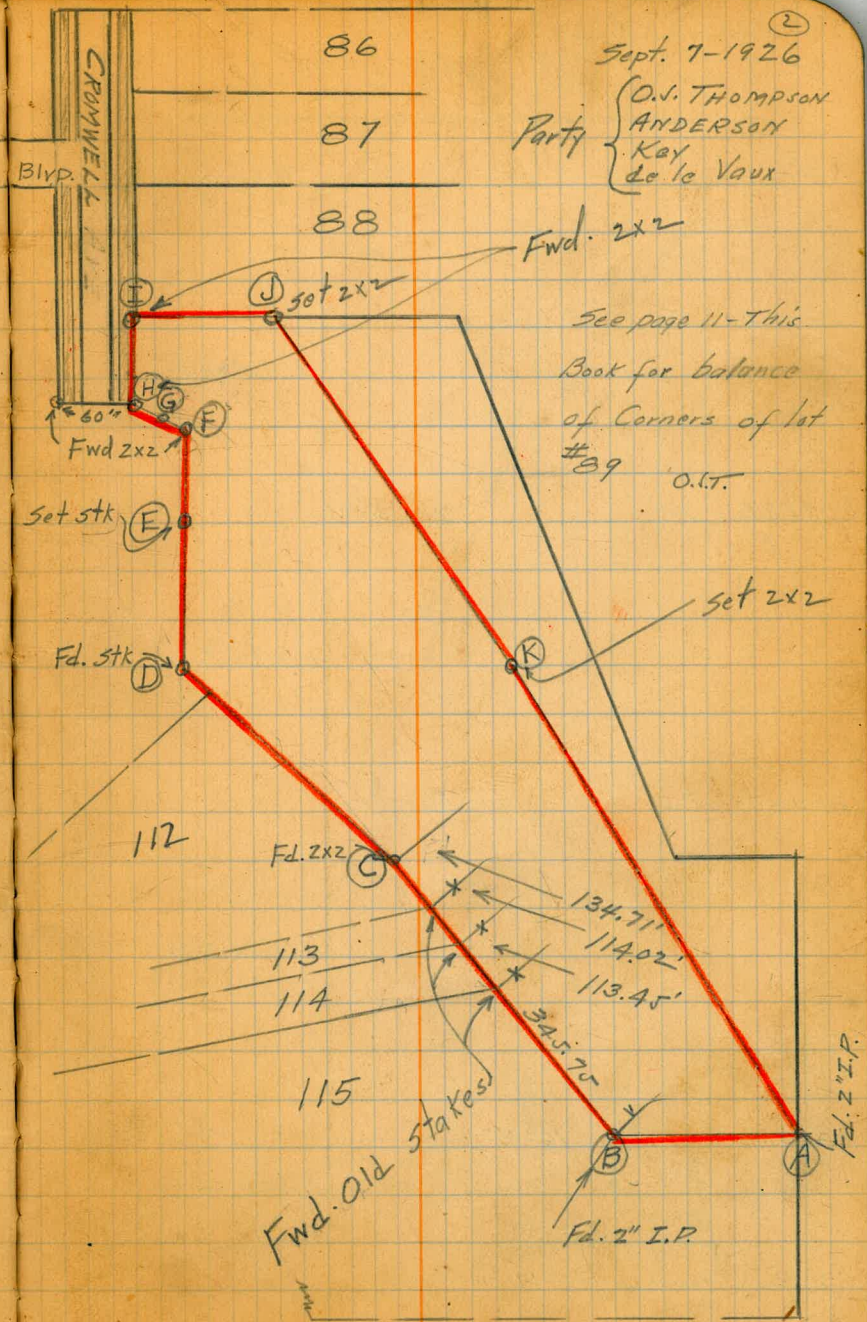 2
Sept. 7-1926
Party
O.J. THOMPSON
ANDERSON
Kay
de le Vaux
86
87
88
CROMWELL
Blvd.
Fwd. 2x2
I
J
set 2x2
See page 11-This
Book for balance
of Corners of lot
#89
O.J.T.
H
G
F
60'
Fwd 2x2
Set stk
E
set 2x2
K
Fd. stk
D
112
Fd. 2x2
C
134.71'
114.02'
113.45'
113
114
345.75
115
Fwd. Old Stakes
B
A
Fd. 2" I.P.
Fd. 2" I.P.